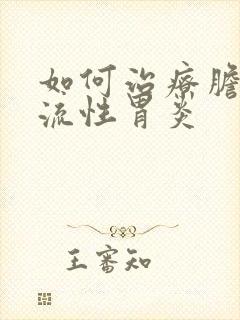 如何治療膽
流性胃炎
王審知